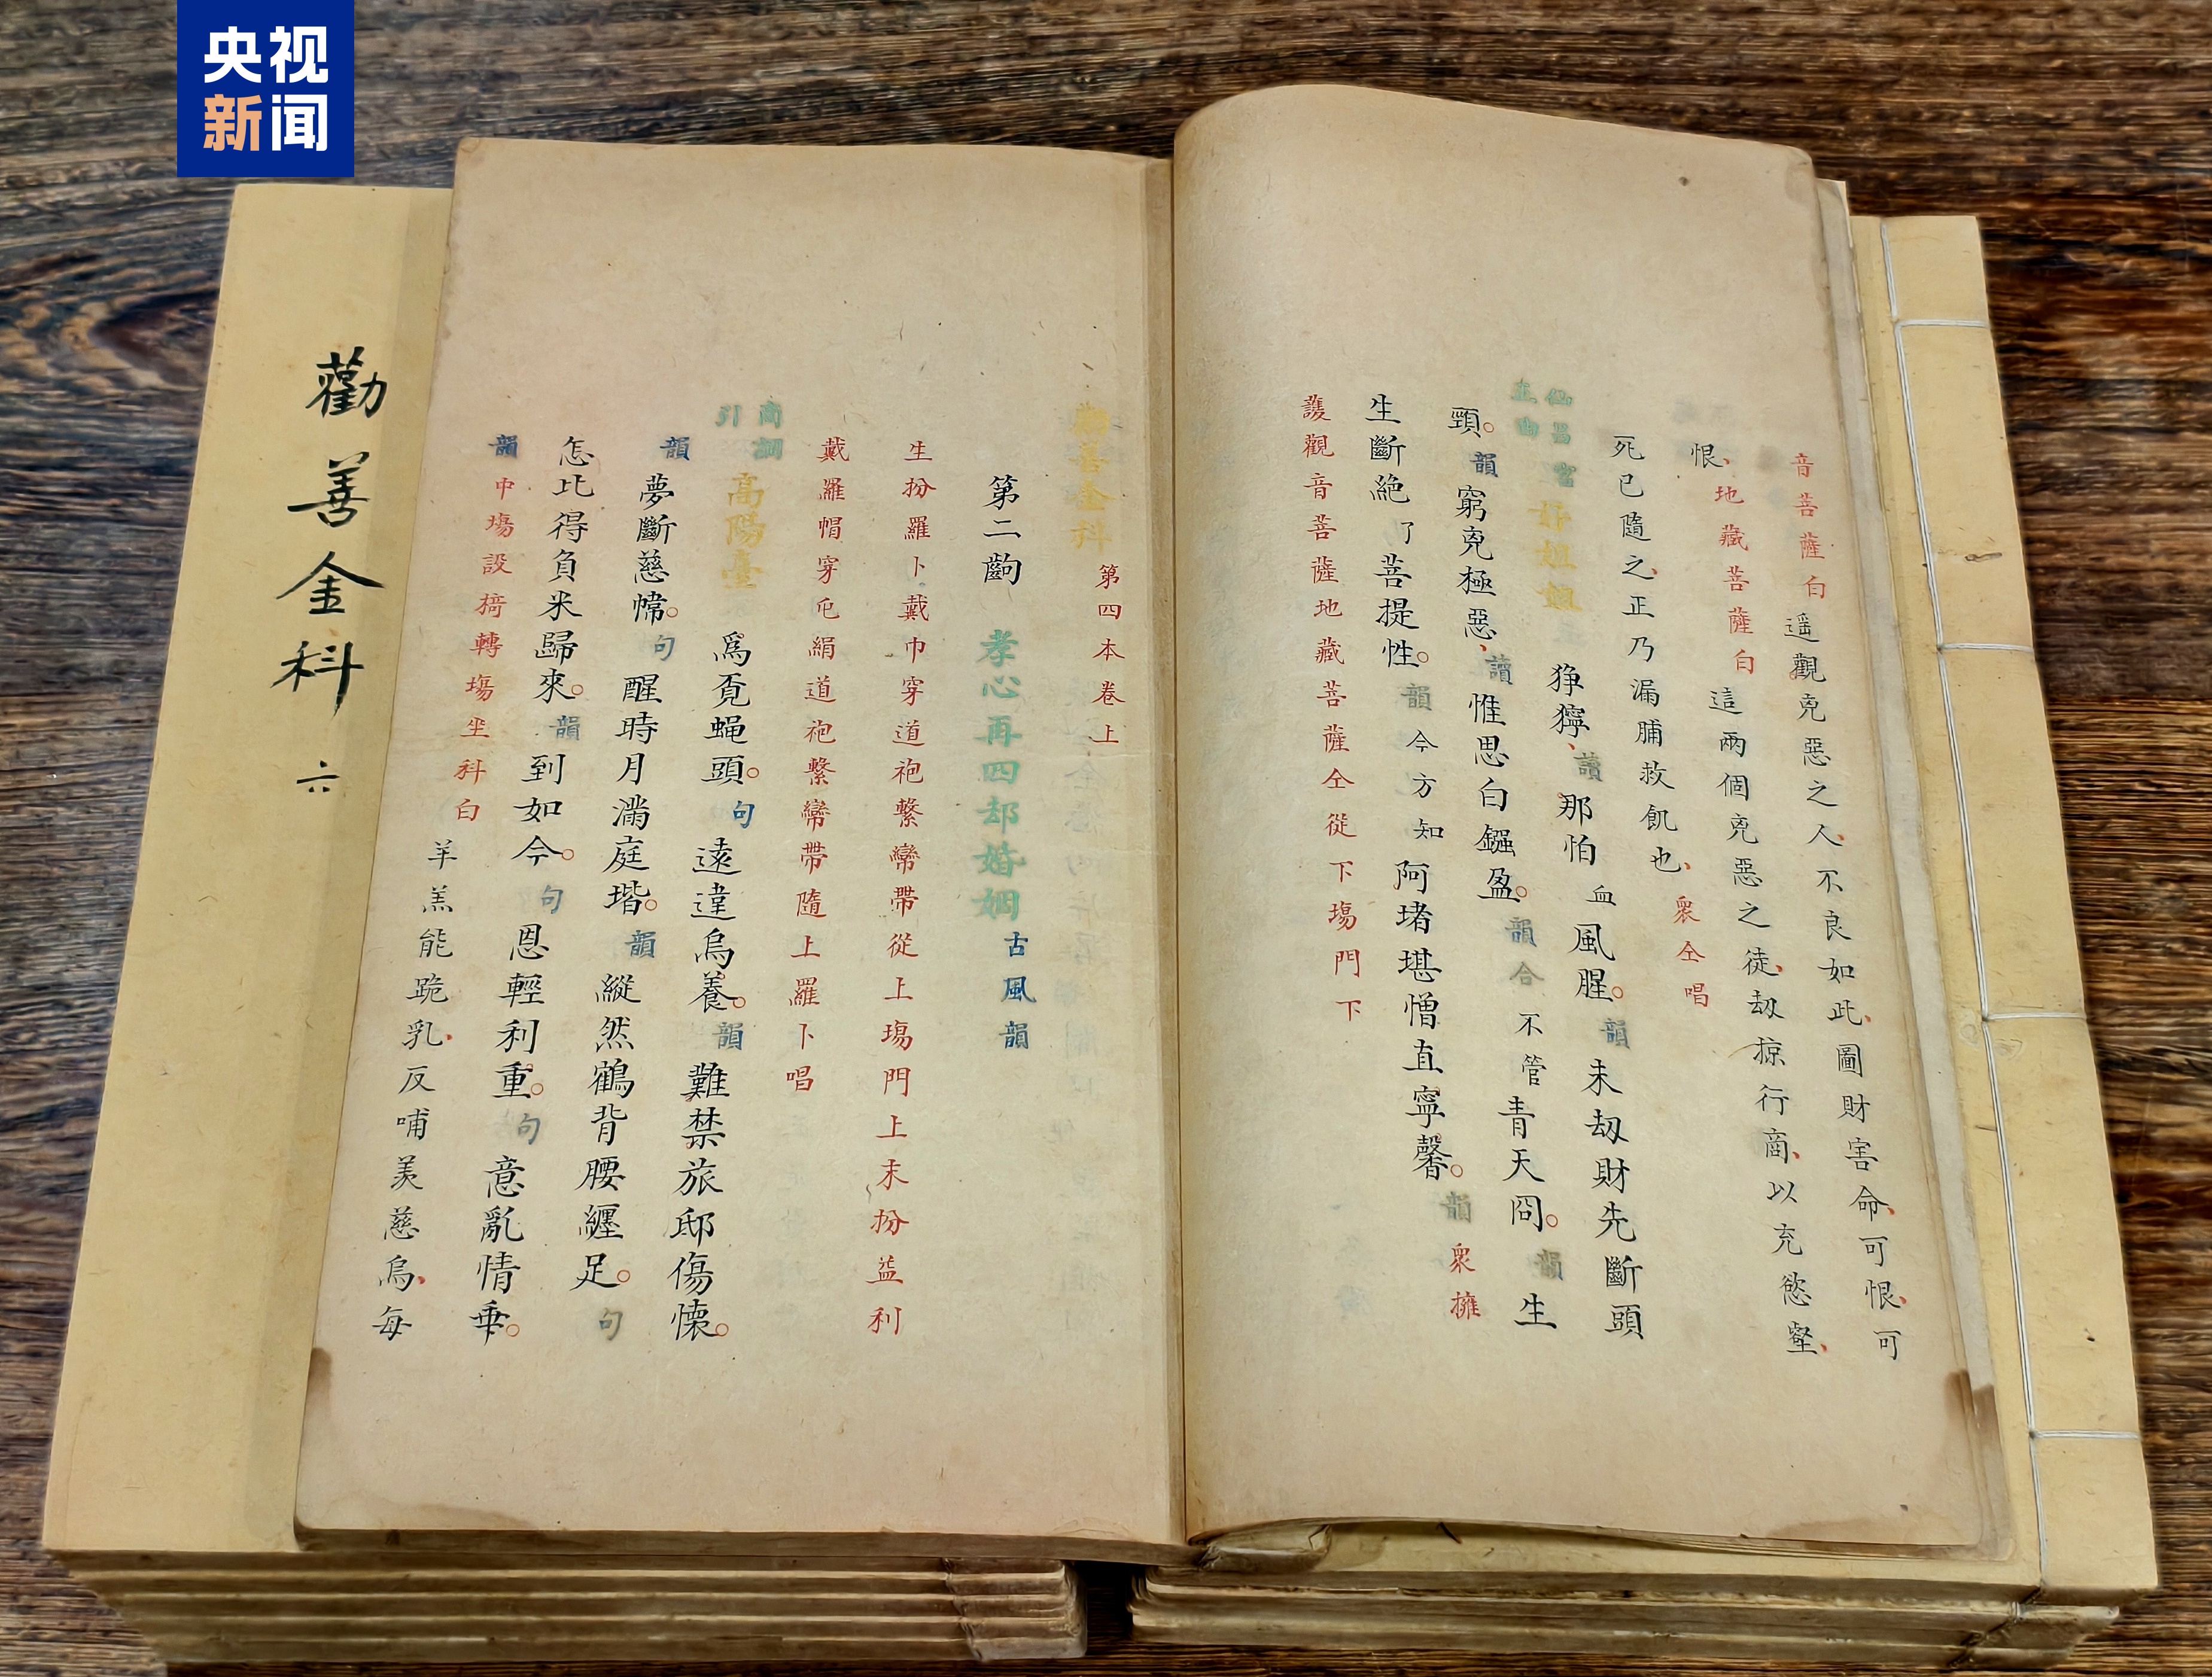 央视
新闻
勸善金科 六
音菩薩白 遥觀兇惡之人、不良如此、圖財害命、可恨、可
恨、地藏菩薩白 這兩個兇惡之徒、刼掠行商、以充慾壑、
死已隨之、正乃漏脯救飢也、衆仝唱
仙呂宮
正曲
好姐姐
猙獰、讀 那怕血風腥。韻 未刼財先斷頭
頸。韻 窮兇極惡、讀 惟思白鏹盈。韻 合 不管青天冏。韻 生
生斷絶了菩提性。韻 今方知阿堵堪憎直寧馨。韻 衆擁
護觀音菩薩地藏菩薩仝從下塲門下
勸善金科 第四本卷上
第二齣 孝心再四却婚姻 古風韻
生扮羅卜戴巾穿道袍繫縧帶從上塲門上末扮益利
戴羅帽穿屯絹道袍繫縧帶隨上羅卜唱
商調
引
高陽臺
爲覓蝇頭。句 遠違烏養。韻 難禁旅邸傷懷。
韻 夢斷慈幃。句 醒時月滿庭堦。韻 縱然鶴背腰纒足。句
怎比得負米歸來。韻 到如今。句 恩輕利重。句 意亂情乖。
韻 中塲設椅轉塲坐科白 羊羔能跪乳、反哺羨慈烏、每